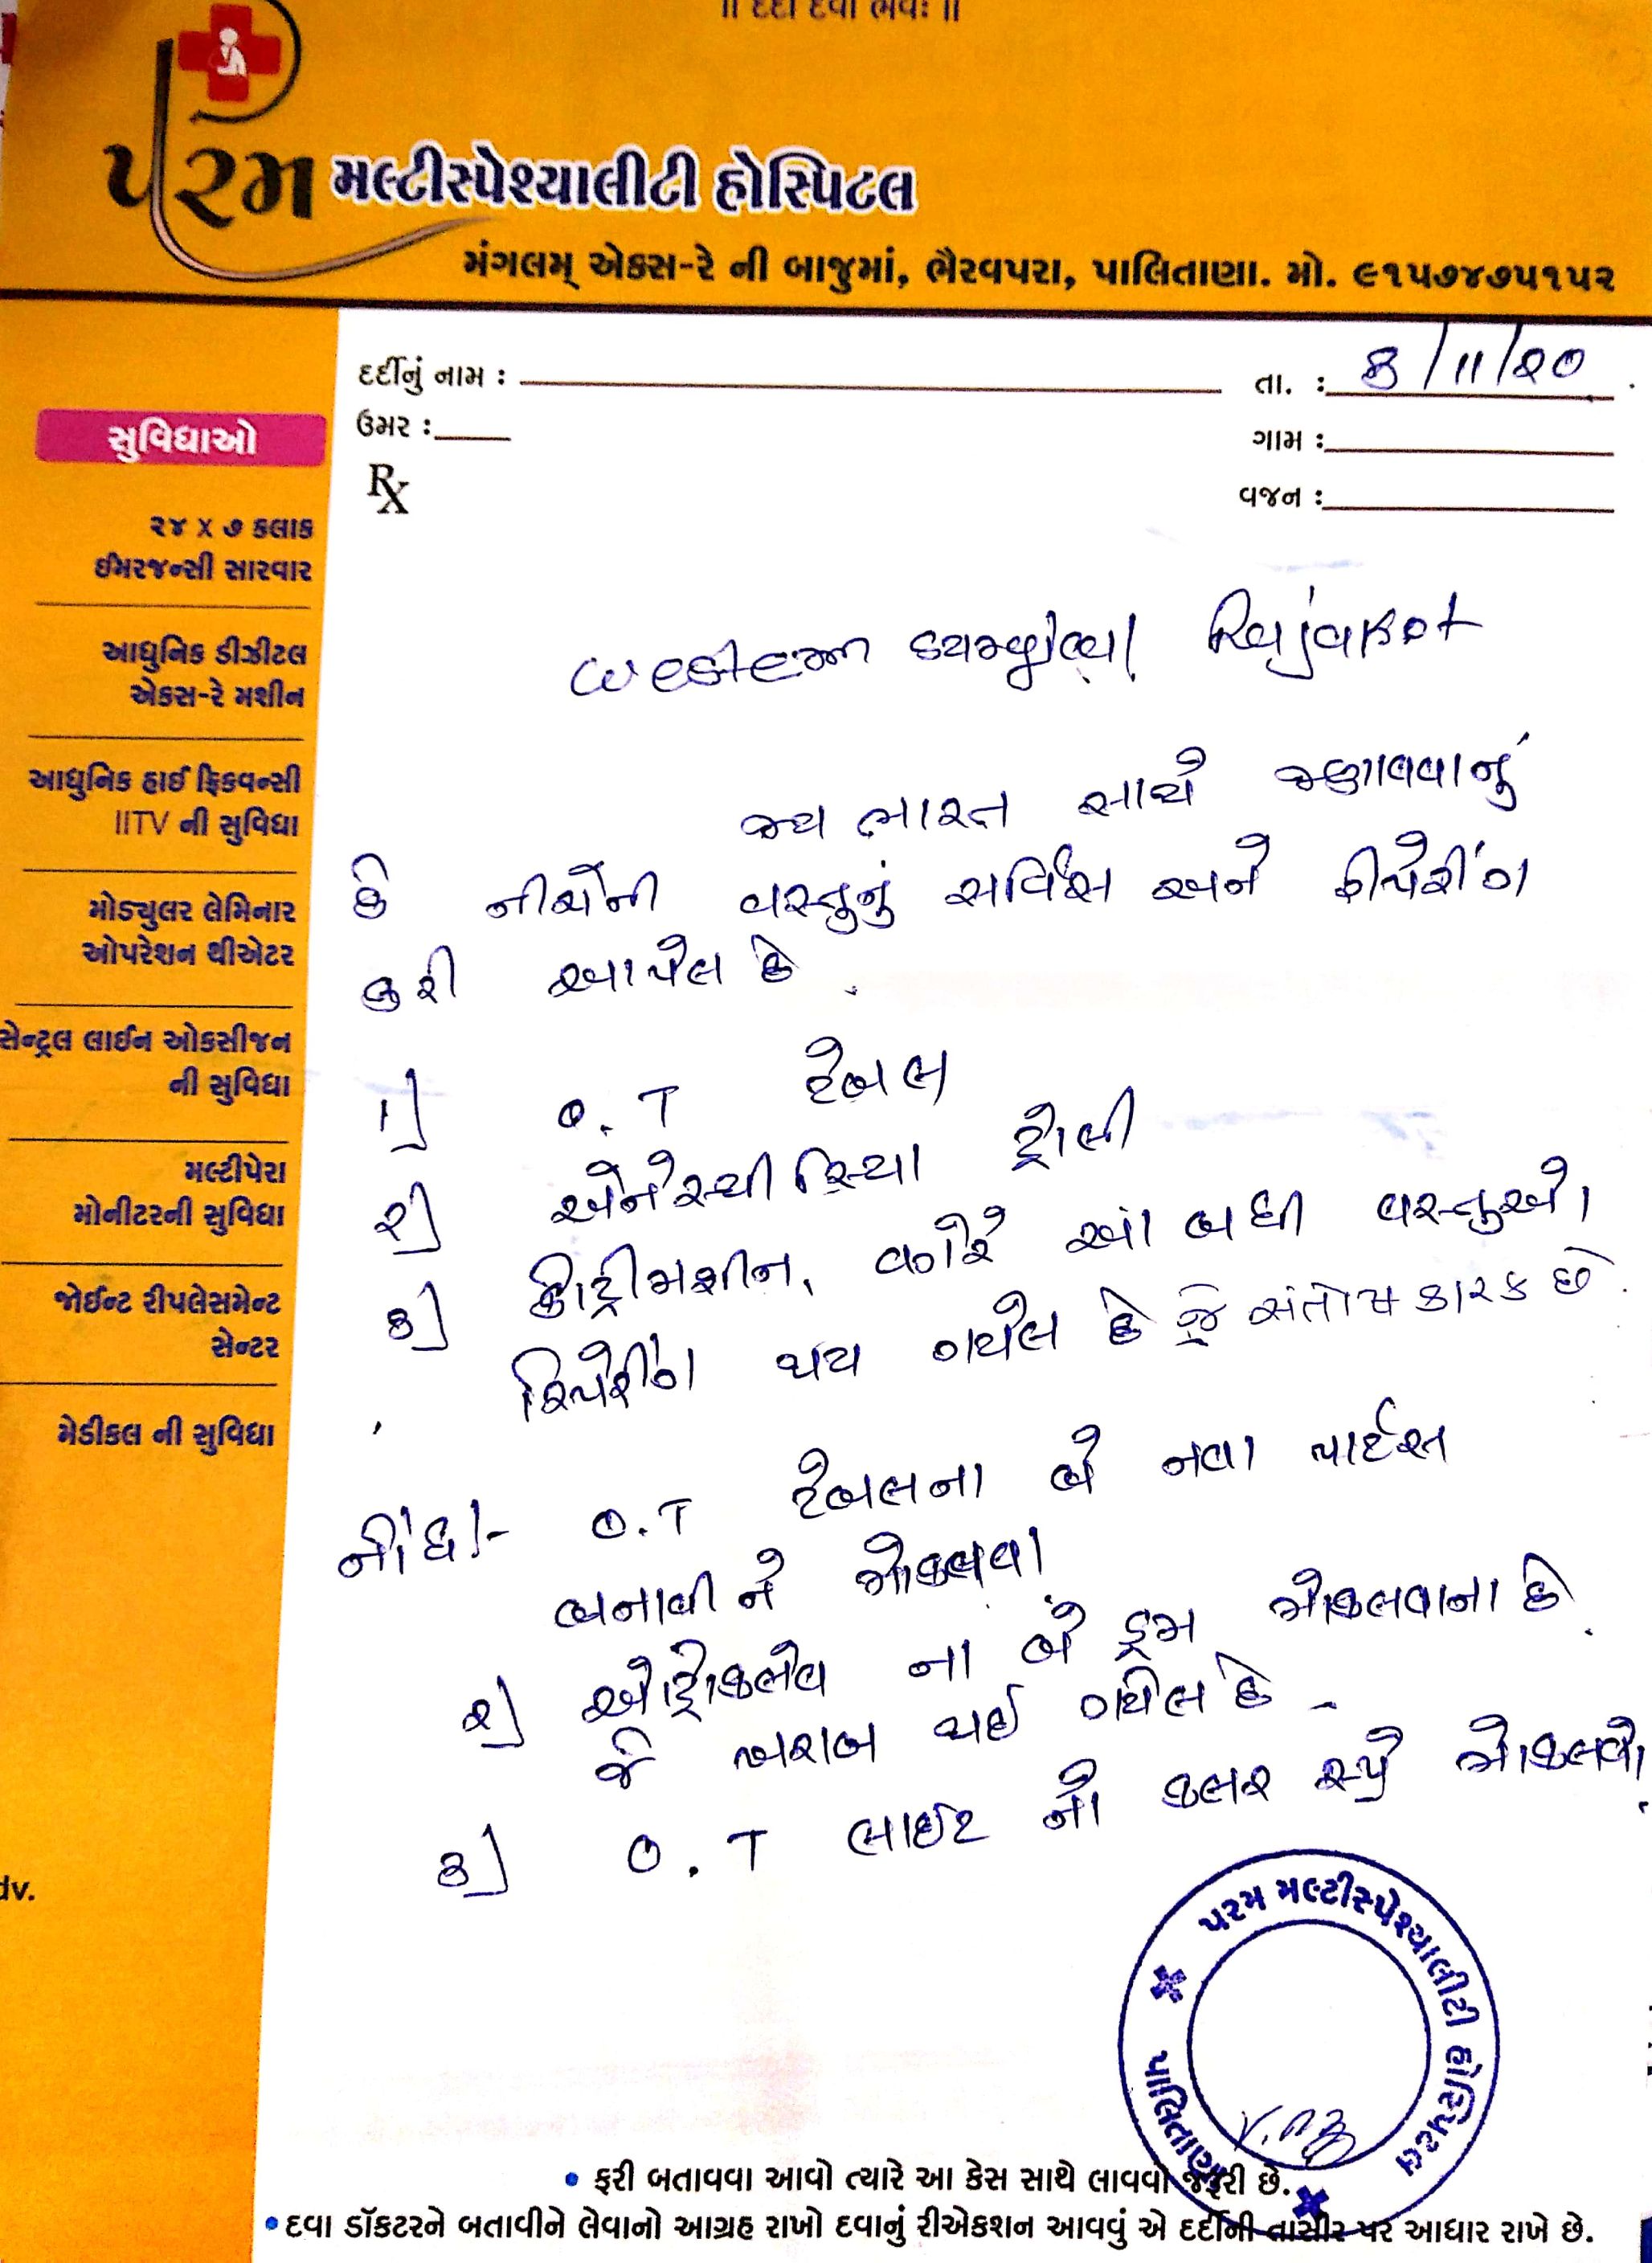 ॥ દર્દી દેવો ભવઃ ॥
પરમ મલ્ટીસ્પેશ્યાલીટી હોસ્પિટલ
મંગલમ્ એક્સ-રે ની બાજુમાં, ભૈરવપરા, પાલિતાણા. મો. ૯૧૫૭૪૭૫૧૫૨
દર્દીનું નામ :
તા. : 3/11/20
ઉમર :
ગામ :
Rx
વજન :
સુવિધાઓ
૨૪ X ૭ કલાક
ઈમરજન્સી સારવાર
આધુનિક ડીઝીટલ
એક્સ-રે મશીન
આધુનિક હાઈ ફ્રિકવન્સી
IITV ની સુવિધા
મોડ્યુલર લેમિનાર
ઓપરેશન થીએટર
સેન્ટ્રલ લાઈન ઓક્સીજન
ની સુવિધા
મલ્ટીપેરા
મોનીટરની સુવિધા
જોઈન્ટ રીપ્લેસમેન્ટ
સેન્ટર
મેડીકલ ની સુવિધા
dv.
western Rajakot
જય ભારત સાથે જણાવવાનું
કે નીચેની વસ્તુનું સર્વિસ અને રીપેરીંગ
કરી આપેલ છે.
૧] O.T ટેબલ
૨] એનેસ્થીસિયા ટ્રોલી
૩] મશીન, વગેરે આ બધી વસ્તુઓ
રિપેરીંગ થય ગયેલ છે જે સંતોષકારક છે.
નોંધઃ- O.T ટેબલના બે નવા પાર્ટસ
બનાવી ને મોકલવા
૨] ઓટ્રોકલેવ ના બે ડ્રમ મોકલવાના છે.
જે ખરાબ થઈ ગયેલ છે -
૩] O.T લાઈટ નો કલર સ્પ્રે મોકલવો.
પરમ મલ્ટીસ્પેશ્યાલીટી હોસ્પિટલ
પાલિતાણા
• ફરી બતાવવા આવો ત્યારે આ કેસ સાથે લાવવો જરૂરી છે.
• દવા ડૉક્ટરને બતાવીને લેવાનો આગ્રહ રાખો દવાનું રીએકશન આવવું એ દર્દીની તાસીર પર આધાર રાખે છે.